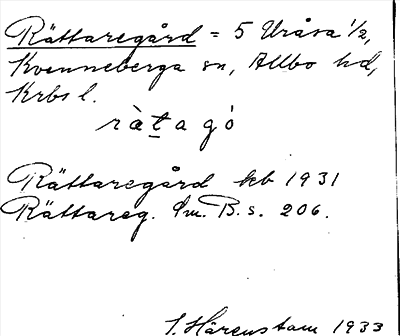 Rättaregård = 5 Uråsa 1/2,
Kvenneberga sn, Allbo hd,
Krbs l.
ràt̲a gó
Rättaregård kb 1931
Rättareg. Öm. B. s. 206.
S. Härenstam 1933